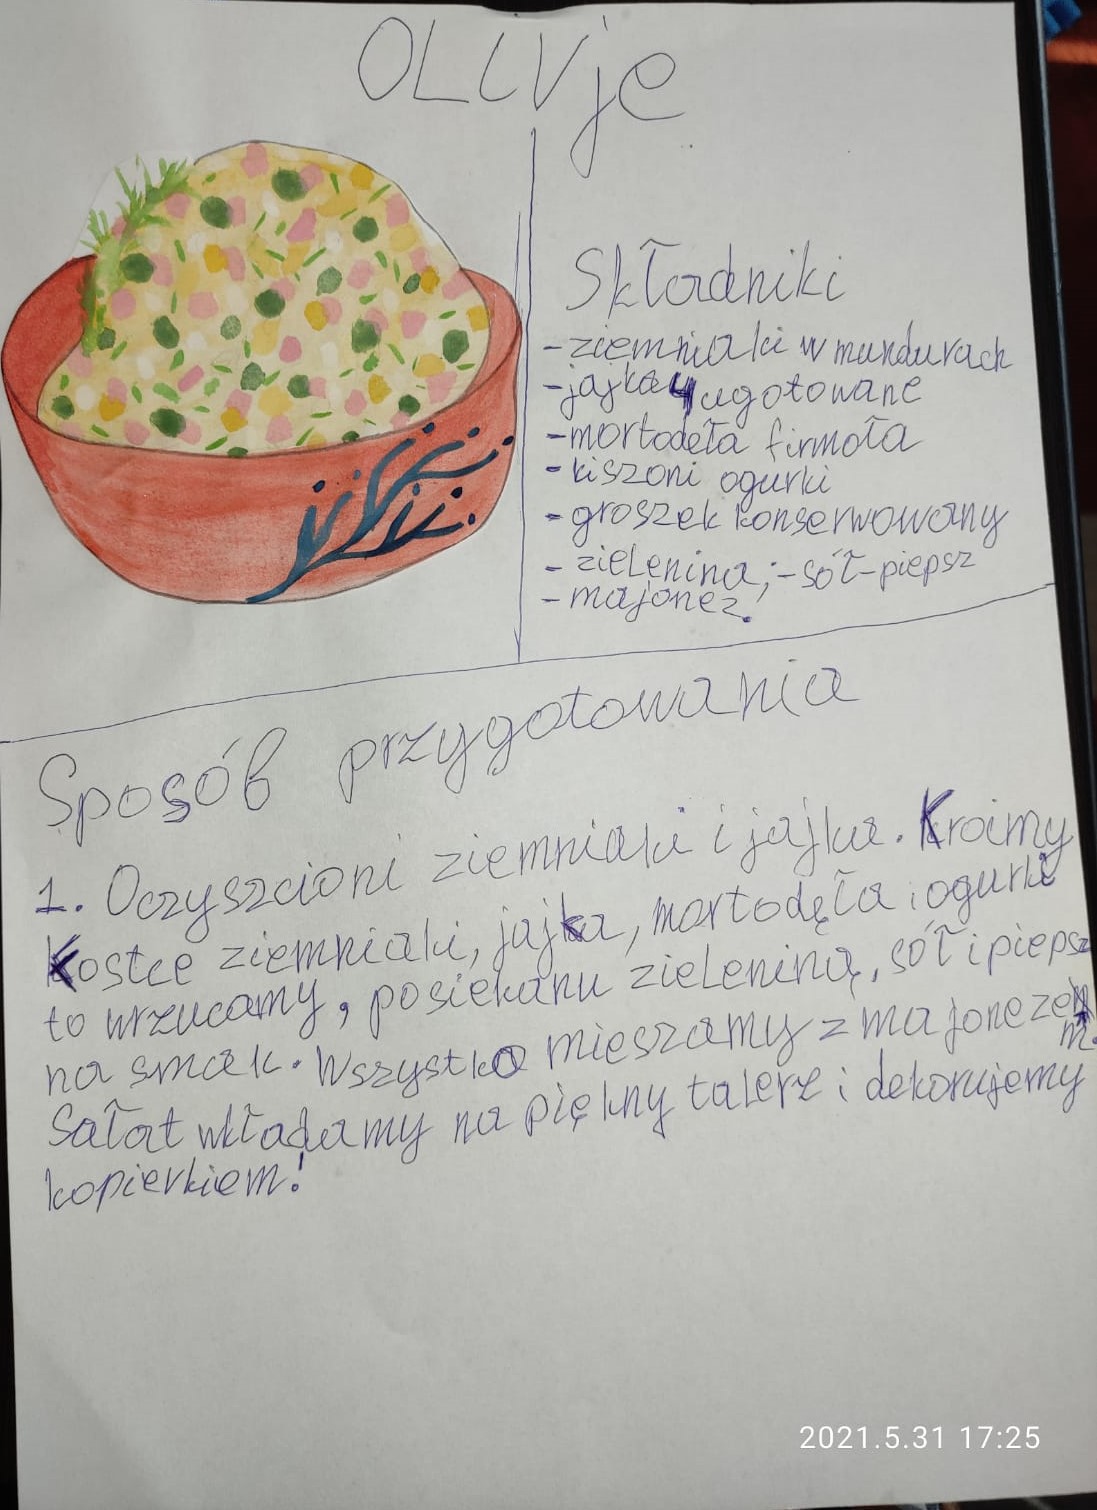 OLIVje
Składniki
-ziemniaki w mundurach
-jajka 4 ugotowane
-mortodeła firmoła
-kiszoni ogurki
-groszek konserwowany
-zielenina,-sół-piepsz
-majonez.
Sposób przygotowania
1. Oczyszcioni ziemniaki i jajka. Kroimy
Kostce ziemniaki, jajka, mortodęła i ogurki
to wrzucamy, posiekanu zieleniną, sół i piepsz
na smak. Wszystko mieszamy z majonezem
m.
Sałat wkładamy na piękny talerz i dekorujemy
kopierkiem!
2021.5.31 17:25